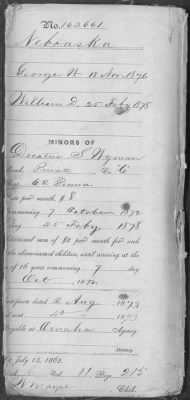 No. 162661
Nebraska
George W 18 Nov. 1876
William D. 25 Feby 1878
MINORS OF
Decatur S. Wyman
Rank, Private Co. "C"
Regt. 62 Penna
Rate per month $8
commencing 7 October 1872
ending 25 Feby. 1878
Additional sum of $2 per month for each
the above-named children, until arriving at the
of 16 years commencing 7 day
Oct 1872
Certificate dated 2 Aug 1873
1873
Payable at Omaha Agency
July 14, 1862.
Page 215
Clerk.